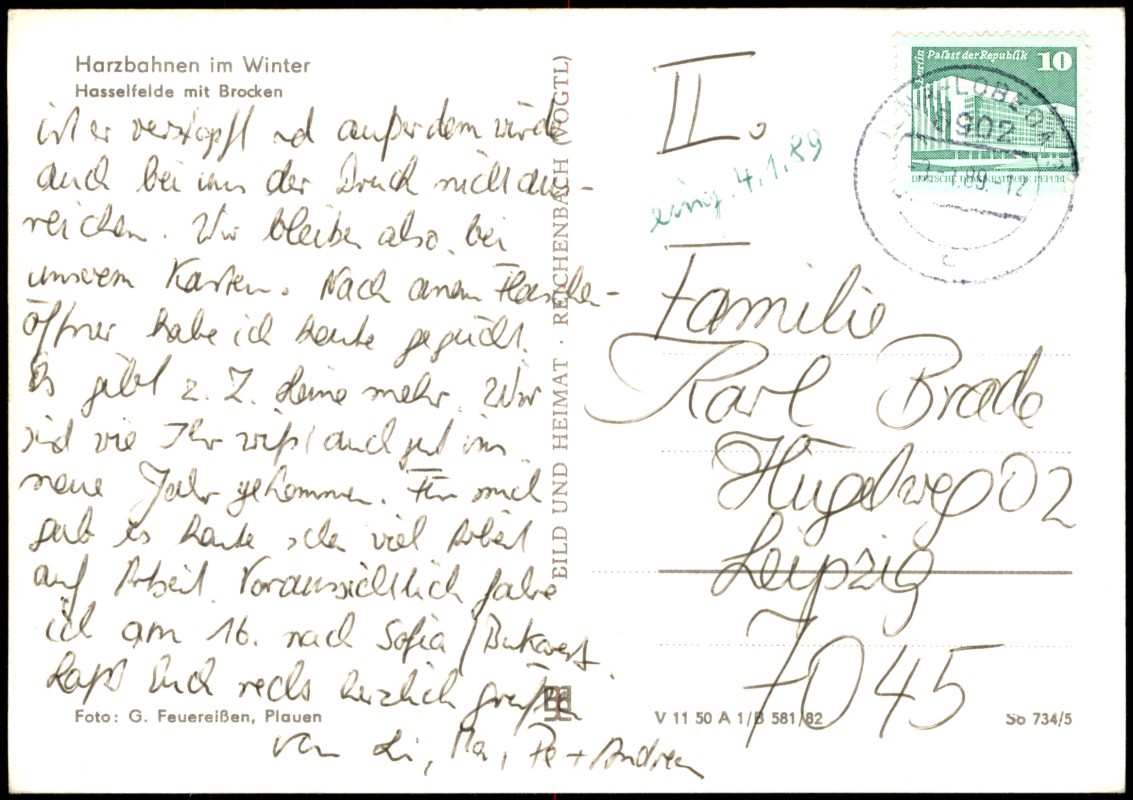 Harzbahnen im Winter
Hasselfelde mit Brocken
ist er verstopft und außerdem würde
auch bei uns der Druck nicht aus-
reichen. Wir bleiben also bei
unserem Kasten. Nach einem Flaschen-
öffner habe ich heute geguckt.
Es gibt z. Z. keine mehr. Wir
sind wie Ihr wißt auch gut ins
neue Jahr gekommen. Für mich
gab es heute schon viel Arbeit
auf Arbeit. Voraussichtlich fahre
ich am 16. nach Sofia / Bukarest.
Laßt Euch recht herzlich grüßen
von Li, Ma, Pe + Andrea
Foto: G. Feuereißen, Plauen
BILD UND HEIMAT · REICHENBACH (VOGTL)
II.
eing. 4.1.89
Berlin Palast der Republik 10
6902
Familie
Karl Brade
Hügelweg 02
Leipzig
7045
V 11 50 A 1/B 581/82
So 734/5